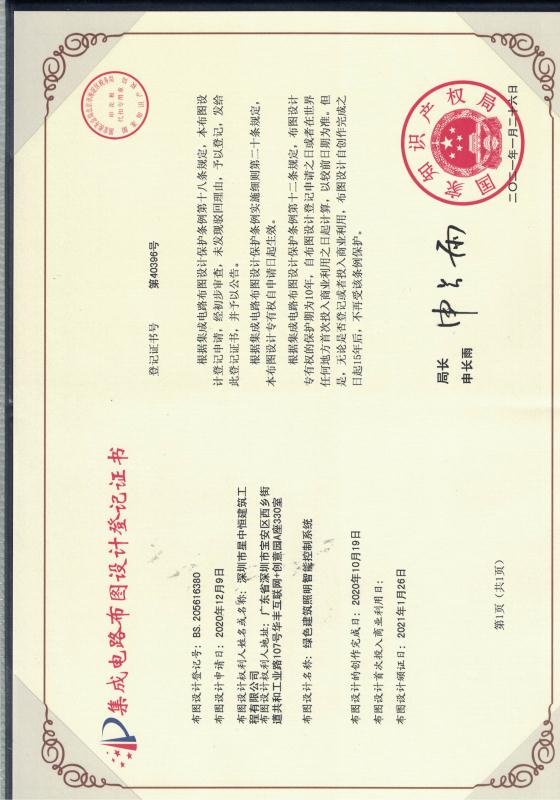 集成电路布图设计登记证书
布图设计登记号：BS. 205616380
布图设计申请日：2020年12月9日
布图设计权利人姓名或名称：深圳市星中恒建筑工
程有限公司
布图设计权利人地址：广东省深圳市宝安区西乡街
道共和工业路107号华丰互联网+创意园A座330室
布图设计名称：绿色建筑照明智能控制系统
布图设计的创作完成日：2020年10月19日
布图设计首次投入商业利用日：
布图设计颁证日：2021年1月26日
登记证书号 第40396号
根据集成电路布图设计保护条例第十八条规定，本布图设
计登记申请，经初步审查，未发现驳回理由，予以登记，发给
此登记证书，并予以公告。
根据集成电路布图设计保护条例实施细则第二十条规定，
本布图设计专有权自申请日起生效。
根据集成电路布图设计保护条例第十二条规定，布图设计
专有权的保护期为10年，自布图设计登记申请之日或者在世界
任何地方首次投入商业利用之日起计算，以较前日期为准。但
是，无论是否登记或者投入商业利用，布图设计自创作完成之
日起15年后，不再受该条例保护。
局长
申长雨
申长雨
国家知识产权局
二〇二一年一月二十六日
第1页（共1页）